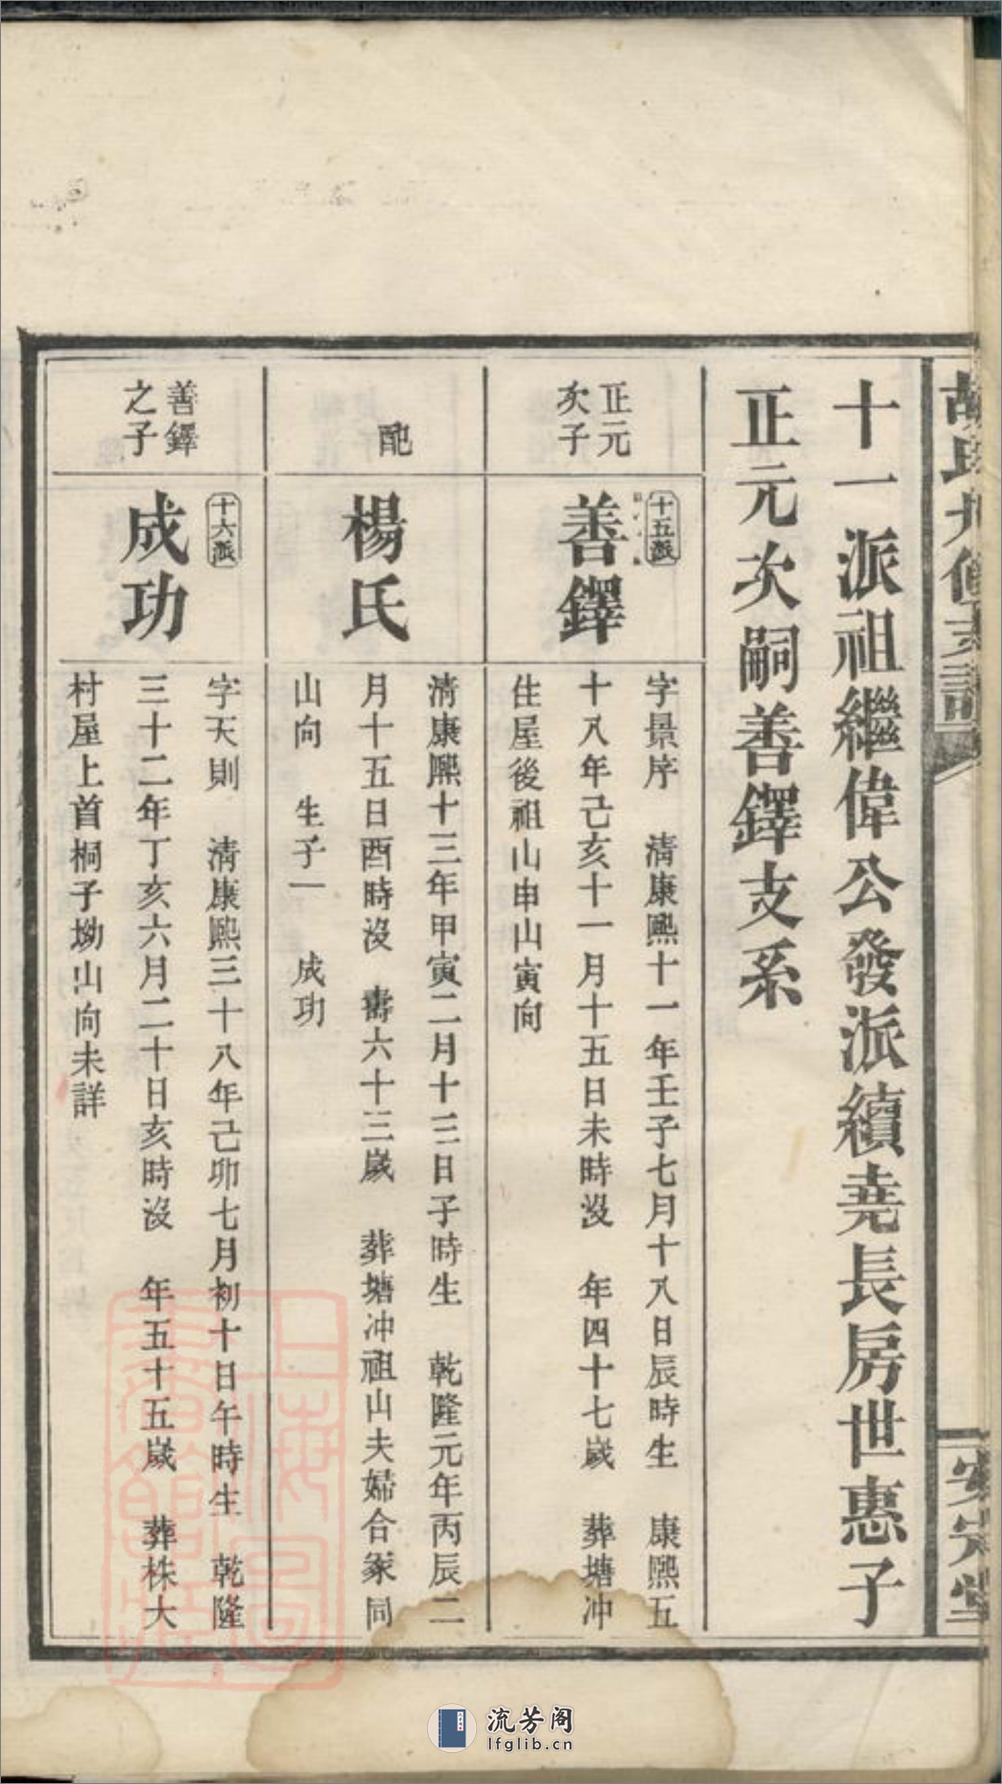 十一派祖繼偉公發派續堯長房世惠子
正元次嗣善鐸支系
正元
次子
十五派
善鐸
字景序 清康熙十一年壬子七月十八日辰時生 康熙五
十八年己亥十一月十五日未時沒 年四十七歲 葬塘冲
住屋後祖山申山寅向
配
楊氏
清康熙十三年甲寅二月十三日子時生 乾隆元年丙辰二
月十五日酉時沒 壽六十三歲 葬塘冲祖山夫婦合冢同
山向 生子一 成功
善鐸
之子
十六派
成功
字天則 清康熙三十八年己卯七月初十日午時生 乾隆
三十二年丁亥六月二十日亥時沒 年五十五歲 葬株大
村屋上首桐子坳山向未詳
流芳阁
lfglib.cn